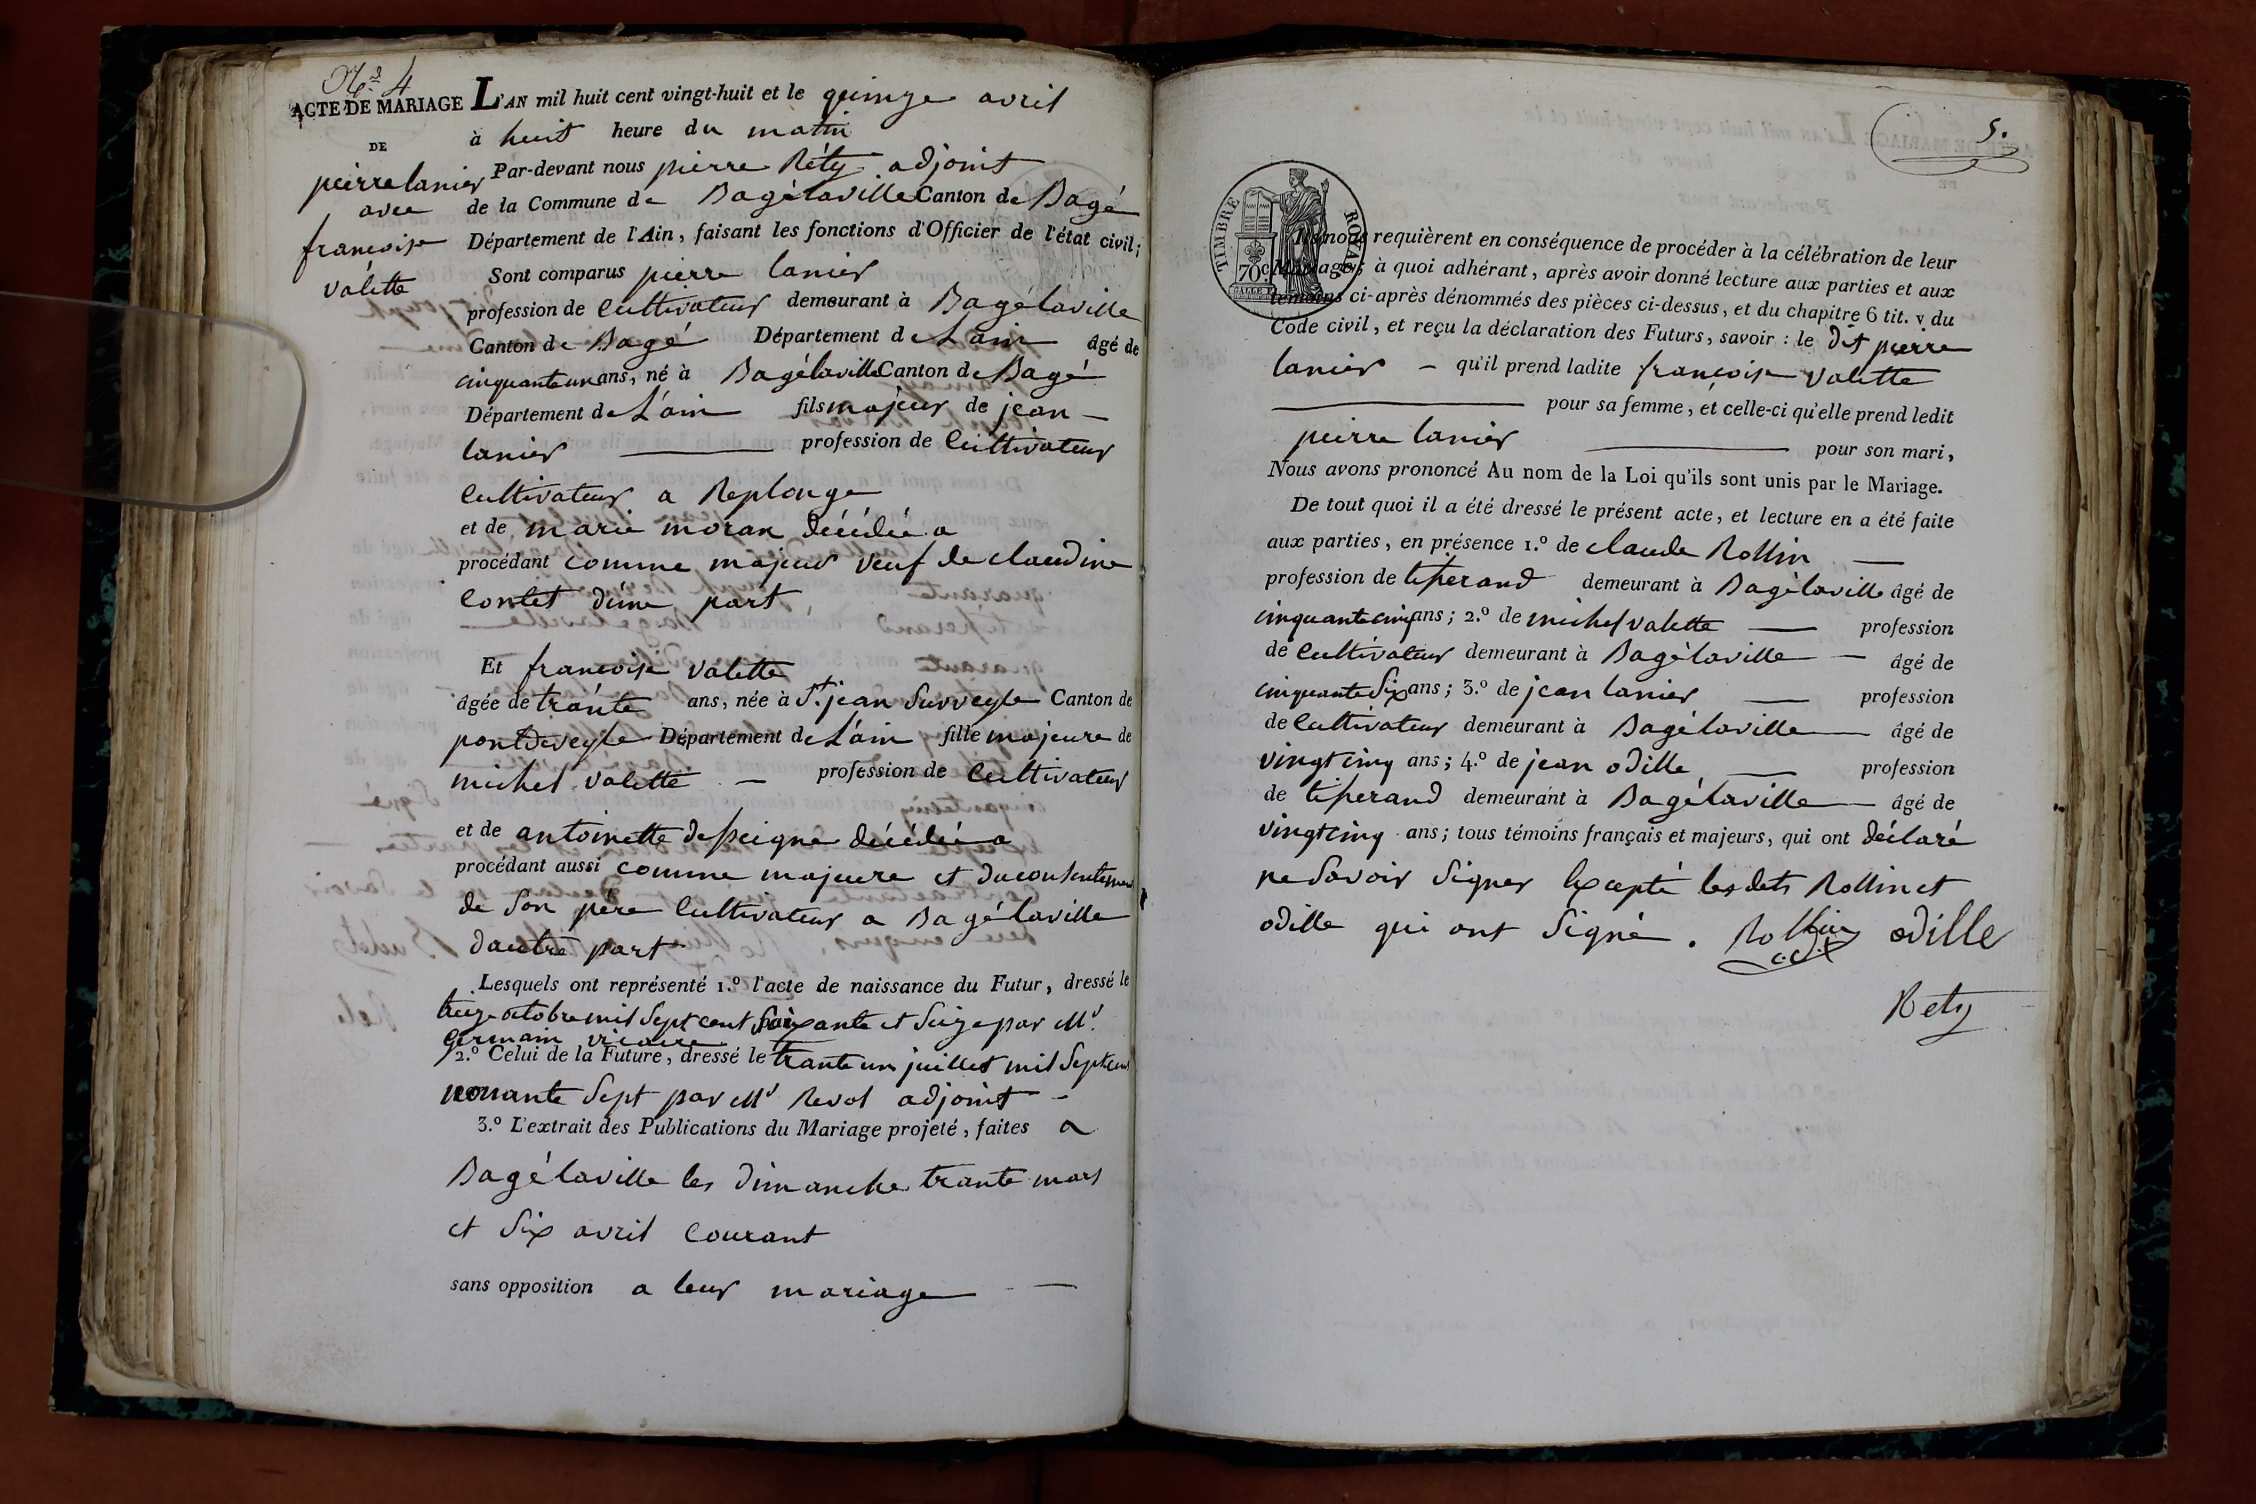 No. 4
ACTE DE MARIAGE
DE
pierre lanier
avec
francoise
valette
L'AN mil huit cent vingt-huit et le quinze avril
à huit heure du matin
Par-devant nous pierre Réty adjoint
de la Commune de Bagélaville Canton de Bagé
Département de l'Ain, faisant les fonctions d'Officier de l'état civil;
Sont comparus pierre lanier
profession de Cultivateur demeurant à Bagélaville
Canton de Bagé Département de L'ain âgé de
cinquante un ans, né à Bagélaville Canton de Bagé
Département de L'ain fils majeur de jean
lanier profession de Cultivateur
Cultivateur a Replonge
et de marie moran décédée a
procédant comme majeur veuf de claudine
Contet d'une part
Et francoise valette
âgée de trante ans, née à St. jean Surveyle Canton de
pontdeveyle Département de L'ain fille majeure de
michel valette profession de Cultivateur
et de antoinette depeigne décédée a
procédant aussi comme majeure et du consentement
de Son père Cultivateur a Bagélaville
dautre part
Lesquels ont représenté 1.º l'acte de naissance du Futur, dressé le
treize octobre mil Sept cent Soixante et Seize par Mr.
germain vicaire
2.º Celui de la Future, dressé le trante un juillet mil Sept cent
nonante Sept par Mr Revol adjoint
3.º L'extrait des Publications du Mariage projeté, faites a
Bagélaville les dimanche trante mars
et Six avril Courant
sans opposition a leur mariage
5.
TIMBRE ROYAL
70c
Ils nous requièrent en conséquence de procéder à la célébration de leur
Mariage; à quoi adhérant, après avoir donné lecture aux parties et aux
témoins ci-après dénommés des pièces ci-dessus, et du chapitre 6 tit. v du
Code civil, et reçu la déclaration des Futurs, savoir : le dit pierre
lanier qu'il prend ladite francoise valette
pour sa femme, et celle-ci qu'elle prend ledit
pierre lanier pour son mari,
Nous avons prononcé Au nom de la Loi qu'ils sont unis par le Mariage.
De tout quoi il a été dressé le présent acte, et lecture en a été faite
aux parties, en présence 1.º de claude Rollin
profession de tiserand demeurant à Bagélaville âgé de
cinquante cinq ans; 2.º de michel valette profession
de Cultivateur demeurant à Bagélaville âgé de
cinquante Six ans; 3.º de jean lanier profession
de Cultivateur demeurant à Bagélaville âgé de
vingt cinq ans; 4.º de jean odille profession
de tiserand demeurant à Bagélaville âgé de
vingt cinq ans; tous témoins français et majeurs, qui ont déclaré
ne Savoir Signer Excepté les dets Rollin et
odille qui ont Signé. Rollin odille
Rety